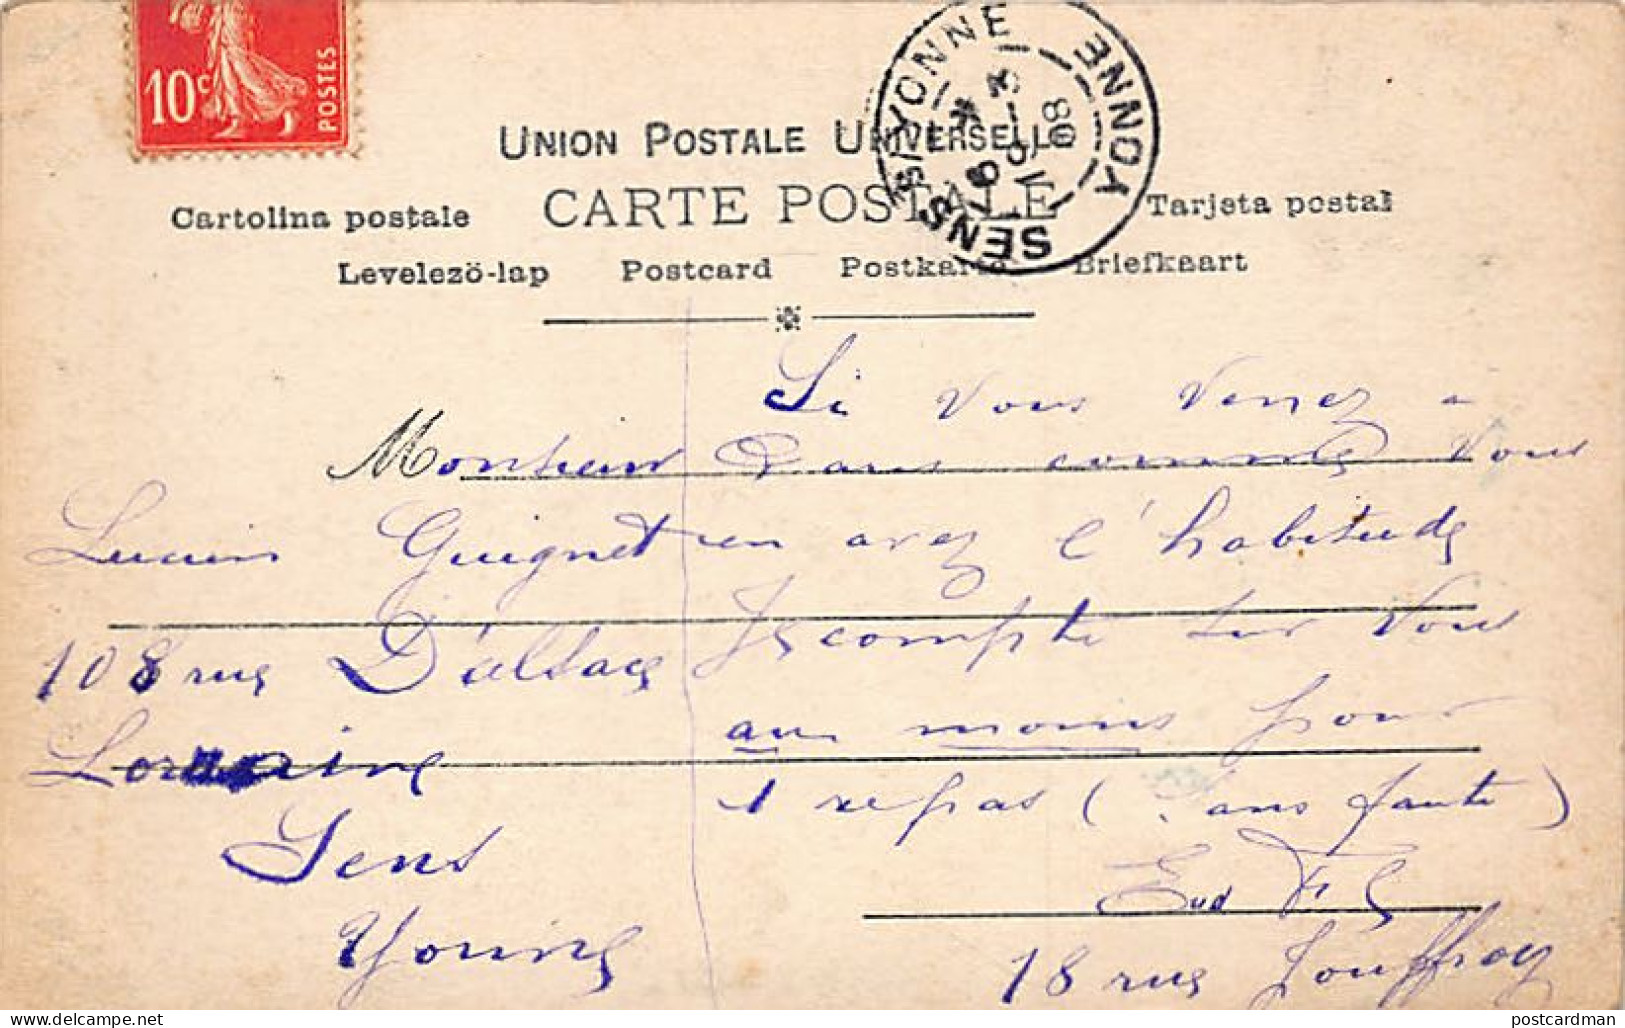 10c
POSTES
SENS S/YONNE YONNE
08
UNION POSTALE UNIVERSELLE
CARTE POSTALE
Cartolina postale
Tarjeta postal
Levelező-lap Postcard Postkarte Briefkaart
Monsieur
Lucien Guignet
108 rue D'alsace
Lorraine
Sens
Yonne
Si vous venez a
Paris comme vous
en avez l'habitude
Je compte sur vous
au moins pour
1 repas (sans faute)
18 rue Jouffroy
delcampe.net
postcardman